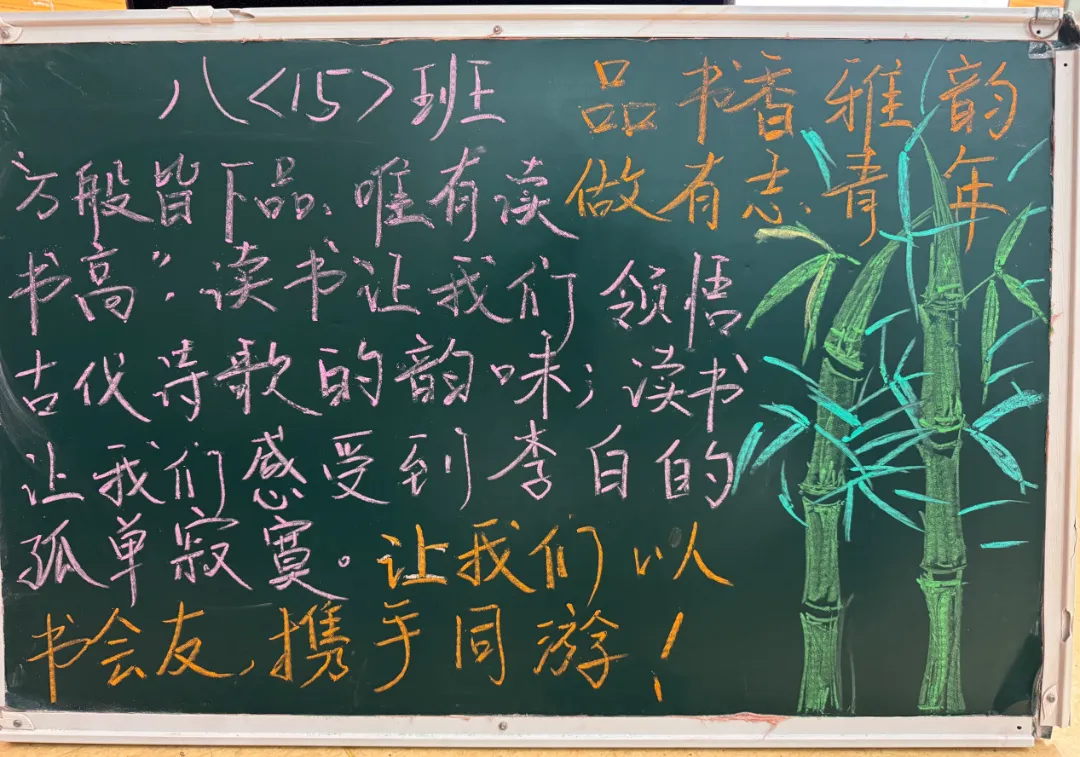 八<15>班
品书香雅韵
做有志青年
万般皆下品、唯有读
书高”.读书让我们领悟
古代诗歌的韵味;读书
让我们感受到李白的
孤单寂寞。让我们以
书会友,携手同游!